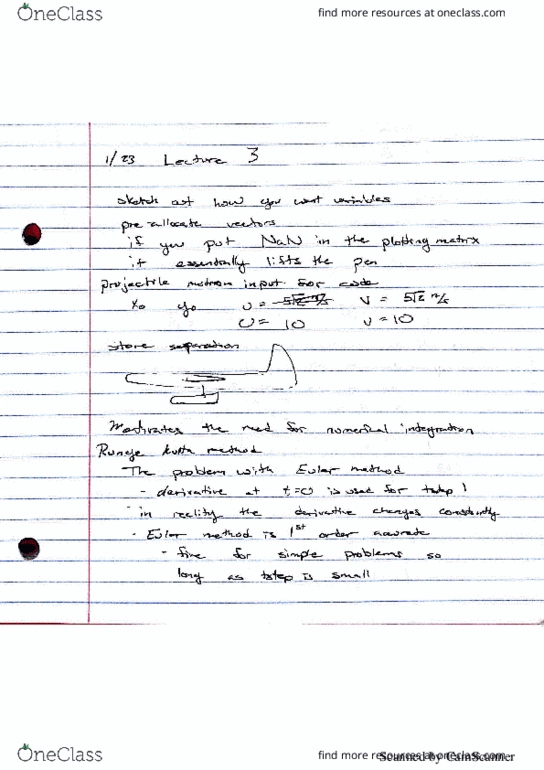 OneClass
find more resources at oneclass.com
1/23 Lecture 3
sketch out how you want variables
pre allocate vectors
if you put NaN in the plotting matrix
it essentially lifts the pen
projectile motion input for code
x₀ y₀ u = 5√2 m/s v = 5√2 m/s
u = 10 v = 10
store separation
Motivates the need for numerical integration
Runge kutta method
The problem with Euler method
- derivative at t=0 is used for tstep 1
- in reality the derivative changes constantly
- Euler method is 1st order accurate
- fine for simple problems so
long as tstep is small
OneClass
find more resources at oneclass.com
Scanned by CamScanner